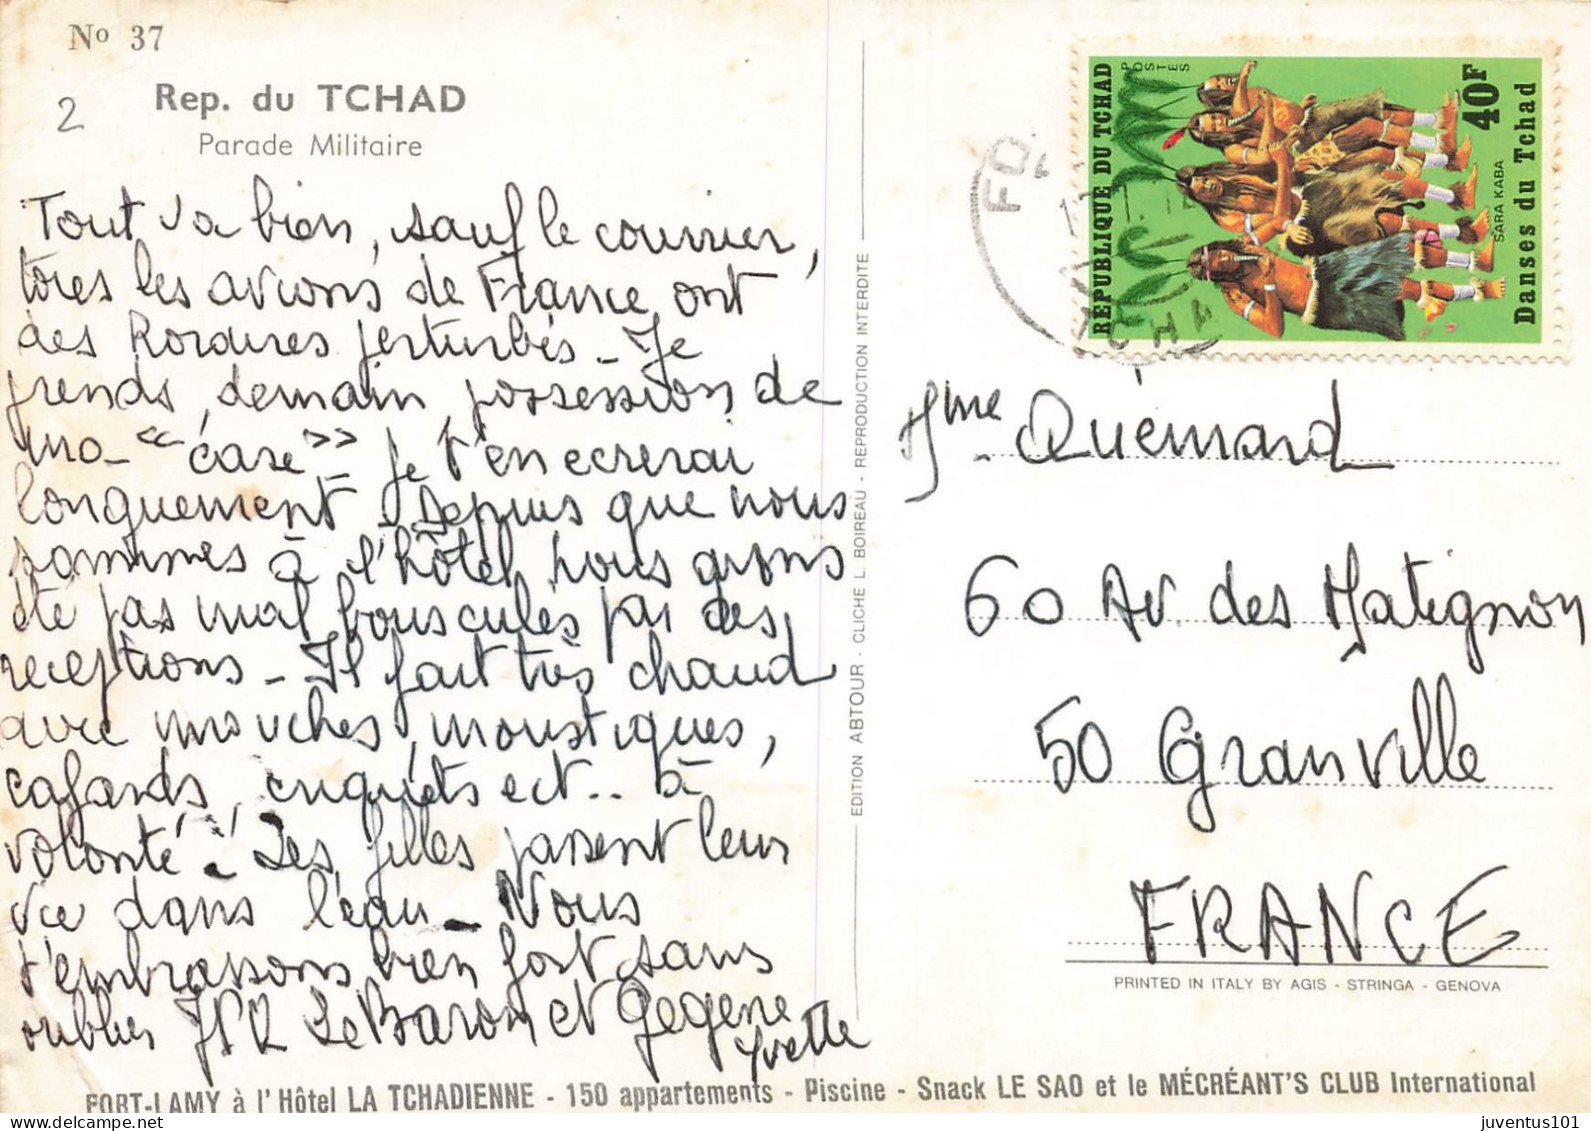 Nº 37
2
Rep. du TCHAD
Parade Militaire
Tout va bien, sauf le courrier,
tous les avions de France ont
des horaires perturbés - Je
prends, demain, possession de
ma "case" je t'en ecrerai
longuement - Depuis que nous
sommes à l'hôtel, nous avons
été pas mal bousculés par des
receptions - Il fait très chaud
avec mouches, moustiques,
cafards, criquets ect.. à
volonté - Les filles passent leur
vie dans l'eau - Nous
t'embrassons bien fort sans
oublier Le Baron et Gegene
Yvette
EDITION ABTOUR - CLICHE L. BOIREAU - REPRODUCTION INTERDITE
REPUBLIQUE DU TCHAD
POSTES
40F
SARA KABA
Danses du Tchad
FO
TCHA
Mme Quémard
60 Av. des Matignon
50 Granville
FRANCE
PRINTED IN ITALY BY AGIS - STRINGA - GENOVA
FORT-LAMY à l'Hôtel LA TCHADIENNE - 150 appartements - Piscine - Snack LE SAO et le MÉCRÉANT'S CLUB International
juventus101